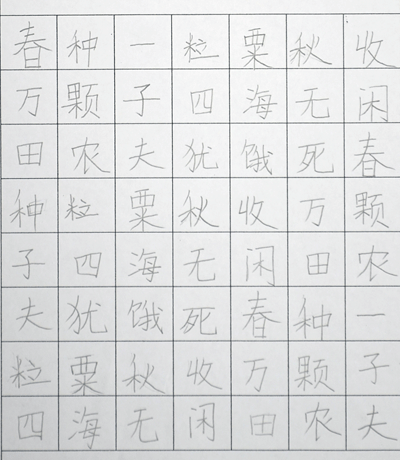 春种一粒粟秋收
万颗子四海无闲
田农夫犹饿死春
种粒粟秋收万颗
子四海无闲田农
夫犹饿死春种一
粒粟秋收万颗子
四海无闲田农夫